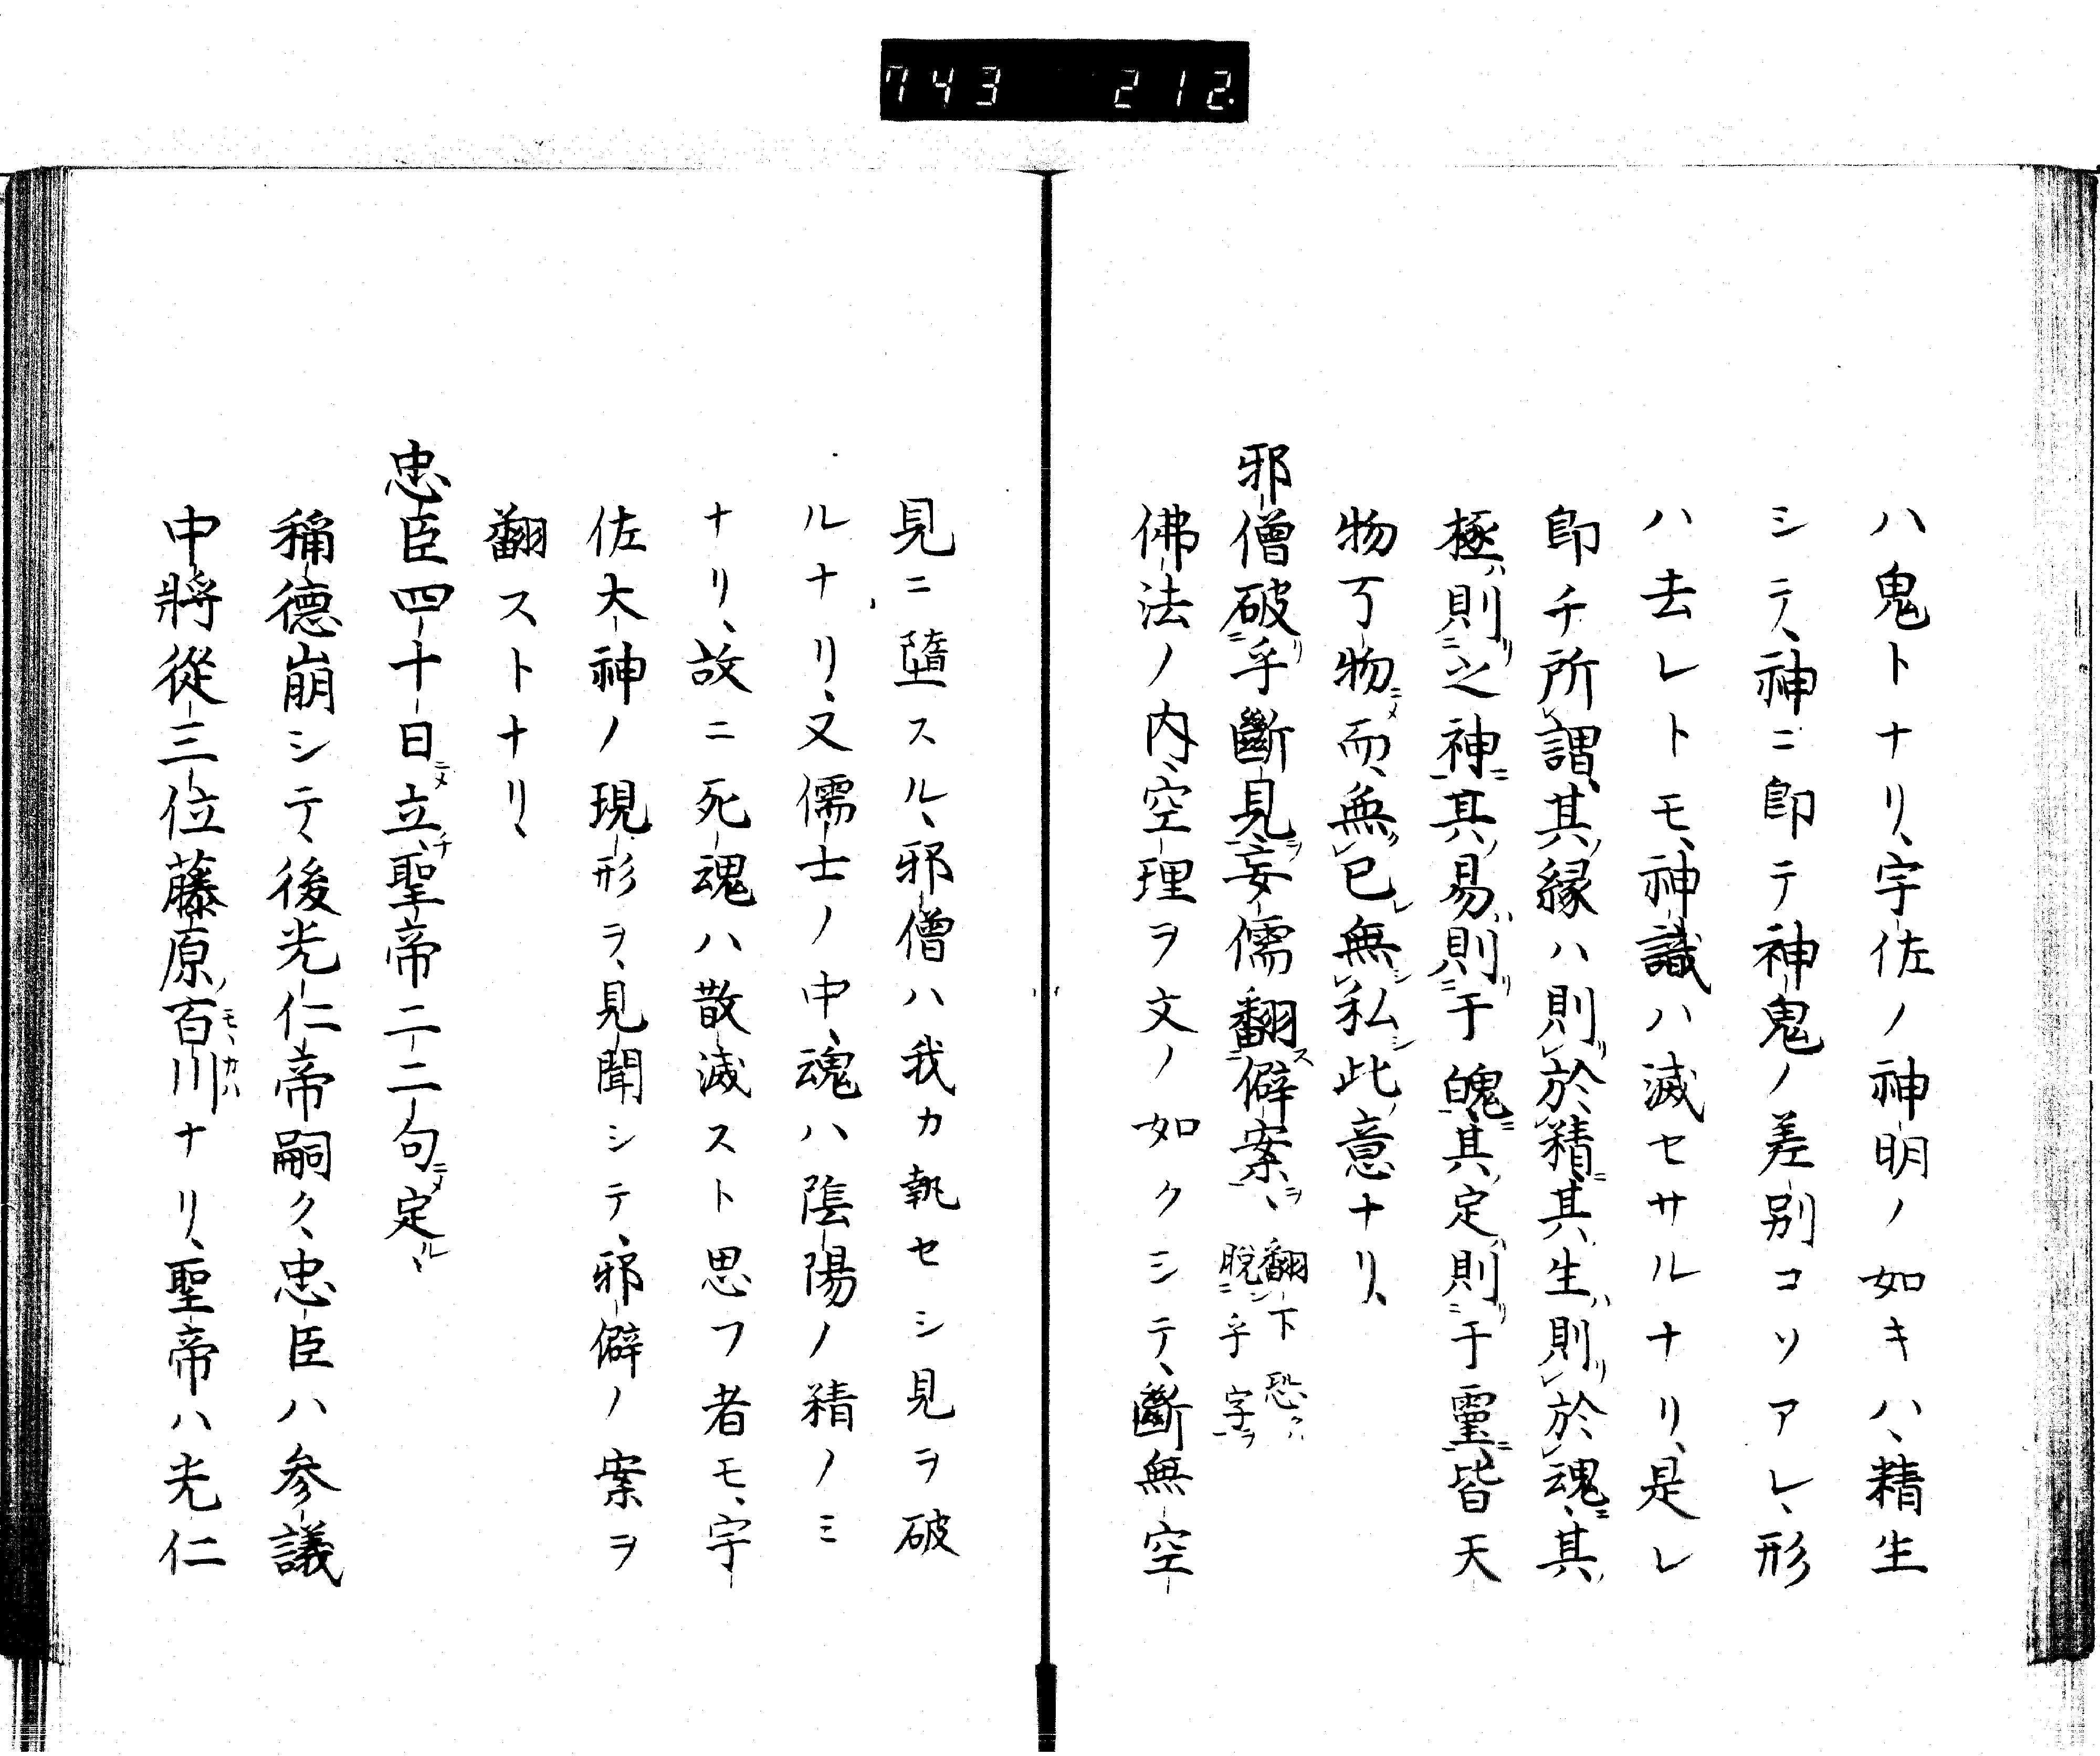 743 212.
ハ鬼トナリ、宇佐ノ神明ノ如キハ、精生
シテ、神ニ即テ神鬼ノ差別コソアレ、形
ハ去レトモ、神識ハ滅セサルナリ、是レ
即チ所謂、其縁ハ則於精、其生則於魂、其
極則之神、其易則于魄、其定則于靈、皆天
物了物而、無已無私此意ナリ、
邪僧破乎斷見、妄儒翻僻案、翻下恐クハ脱乎字
佛法ノ内、空理ヲ文ノ如クシテ、斷無空
見ニ墮スル、邪僧ハ我カ執セシ見ヲ破
ルナリ、又儒士ノ中、魂ハ陰陽ノ精ノミ
ナリ、故ニ死魂ハ散滅スト思フ者モ、宇
佐大神ノ現形ヲ、見聞シテ、邪僻ノ案ヲ
翻ストナリ、
忠臣四十日立聖帝二二句定ル、
稱德崩シテ、後光仁帝嗣ク、忠臣ハ參議
中將從三位藤原百川ナリ、聖帝ハ光仁